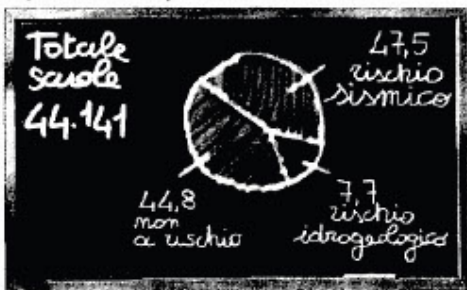 Totale
scuole
44.141
47,5
rischio
sismico
44,8
non
a rischio
7,7
rischio
idrogeologico